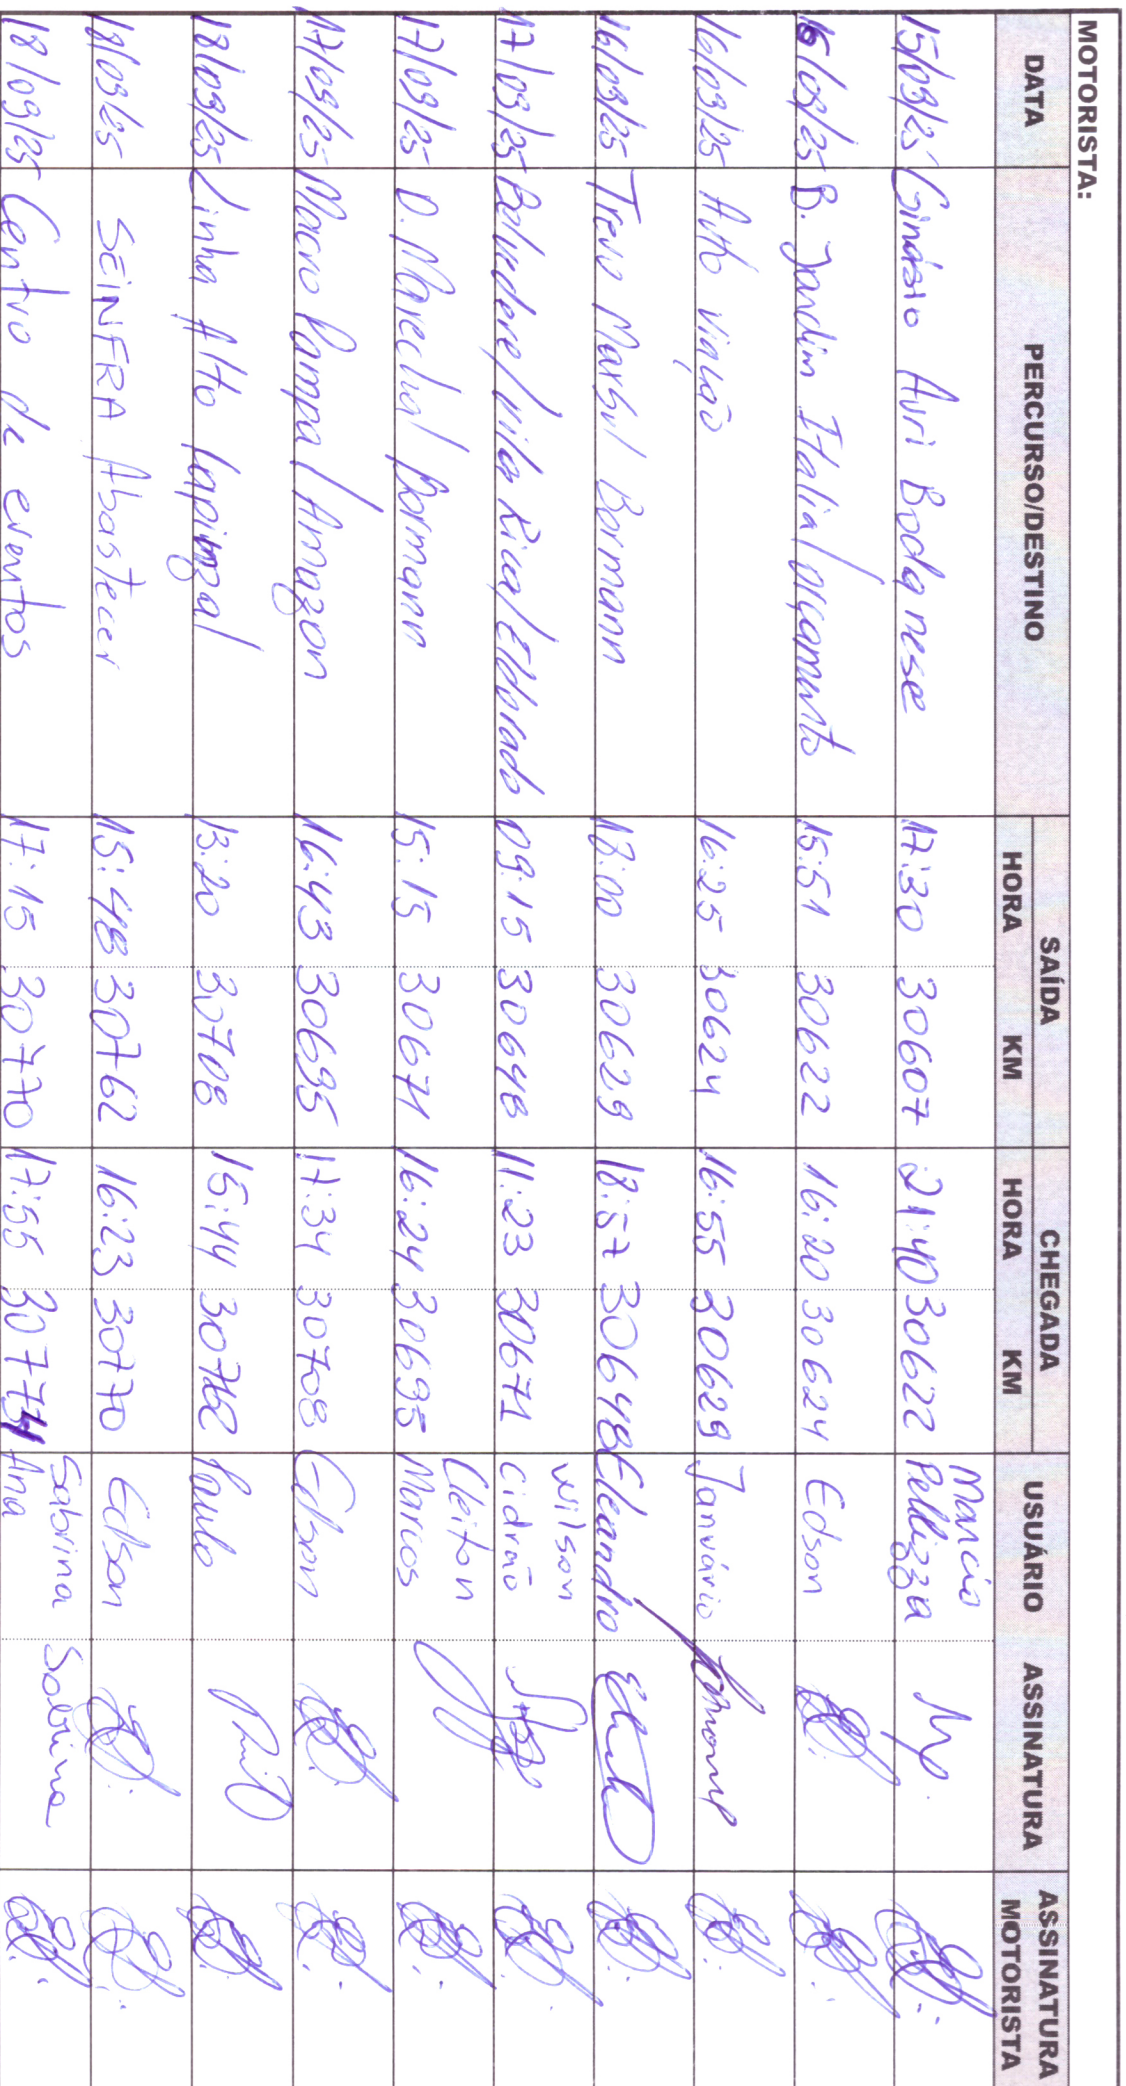 MOTORISTA:
DATA PERCURSO/DESTINO SAÍDA HORA KM CHEGADA HORA KM USUÁRIO ASSINATURA ASSINATURA MOTORISTA
15/09/25 Ginásio Auri Bodanese 17:30 30607 21:40 30622 Marcio Pellizza
16/09/25 B. Jardim Italia/orçamento 15:51 30622 16:20 30624 Edson
16/09/25 Auto viação 16:25 30624 16:55 30629 Januário
16/09/25 Trevo Marsul Bormann 18:00 30629 18:57 30648 Eleandro
17/09/25 Belvedere/Vila Rica/Eldorado 09:15 30648 11:23 30671 Wilson Cidrão
17/09/25 D. Marechal Bormann 15:15 30671 16:24 30695 Cleiton Marcos
17/09/25 Macro Pampa/Amazon 16:43 30695 17:34 30708 Edson
18/09/25 Linha Alto Capinzal 13:20 30708 15:44 30762 Paulo
18/09/25 SEINFRA Abastecer 15:48 30762 16:23 30770 Edson
18/09/25 Centro de eventos 17:15 30770 17:55 30774 Sabrina Ana Sabrina